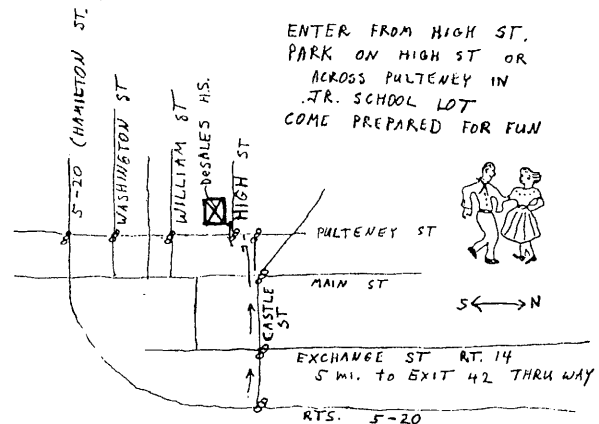 ENTER FROM HIGH ST.
PARK ON HIGH ST OR
ACROSS PULTENEY IN
JR. SCHOOL LOT
COME PREPARED FOR FUN
5-20 (HAMILTON ST.
WASHINGTON ST
WILLIAM ST
DESALES H.S.
HIGH ST
PULTENEY ST
MAIN ST
S N
CASTLE ST
EXCHANGE ST RT. 14
5 mi. to EXIT 42 THRU WAY
RTS. 5-20